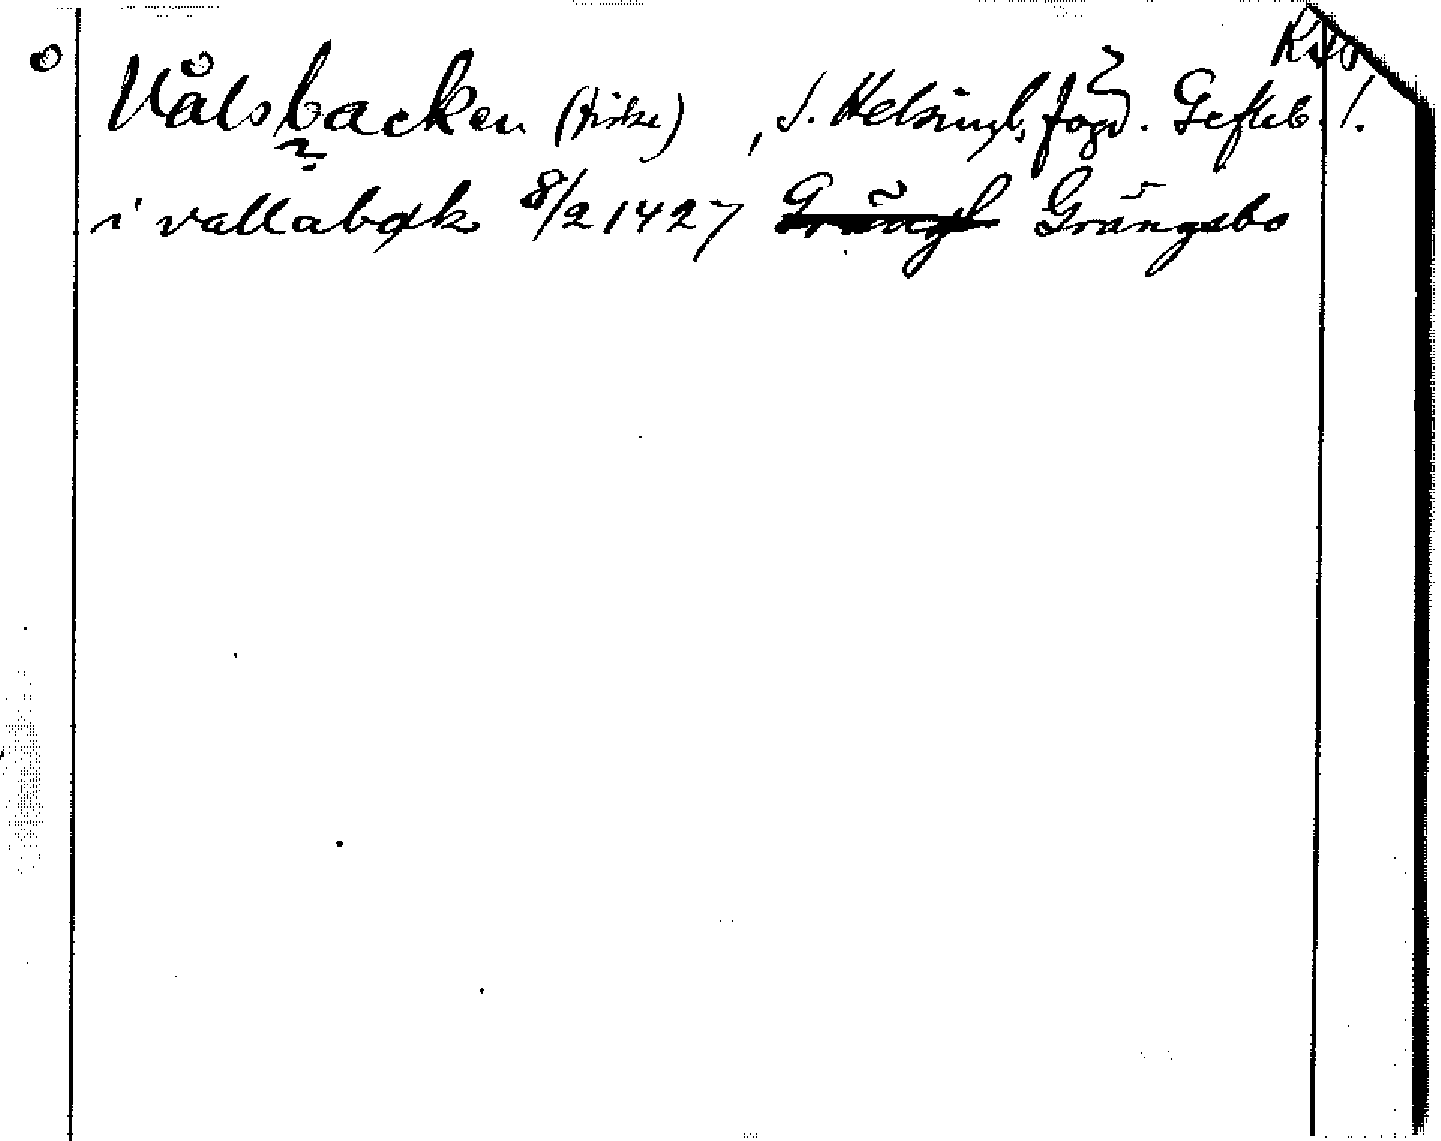 Vålsbacken (fiske) , S. Helsingl. fögd. Gefleb. l.
i vallabok 8/2 1427 Grängsbo